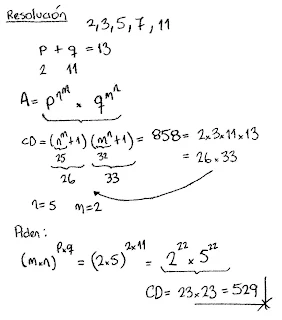 Resolución
2,3,5,7,11
p + q = 13
2 11
A = p^n^m × q^m^n
CD = (n^m+1)(m^n+1) = 858 = 2×3×11×13
25 32 = 26×33
26 33
n=5 m=2
Piden:
(m×n)^p×q = (2×5)^2×11 = 2^22 × 5^22
CD = 23×23 = 529